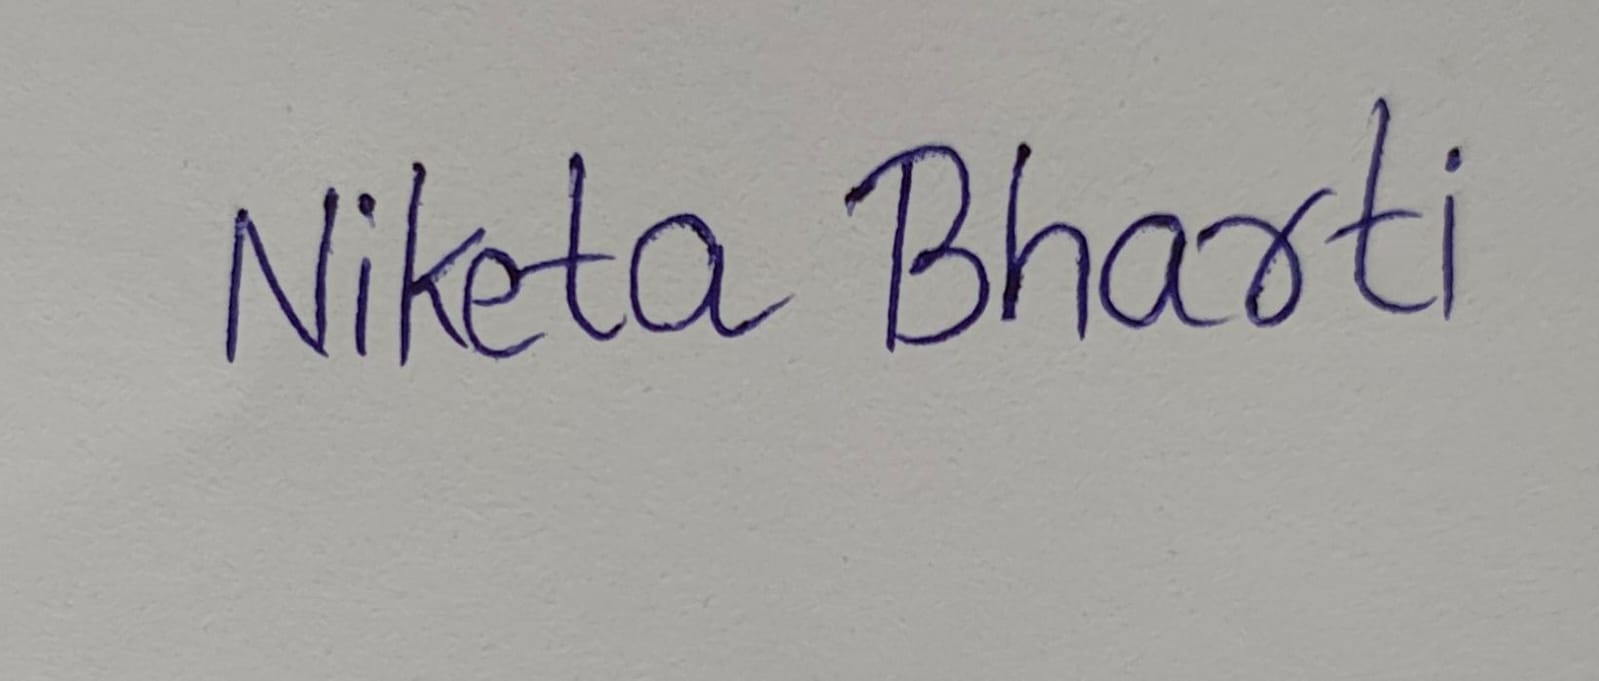 Niketa Bharti